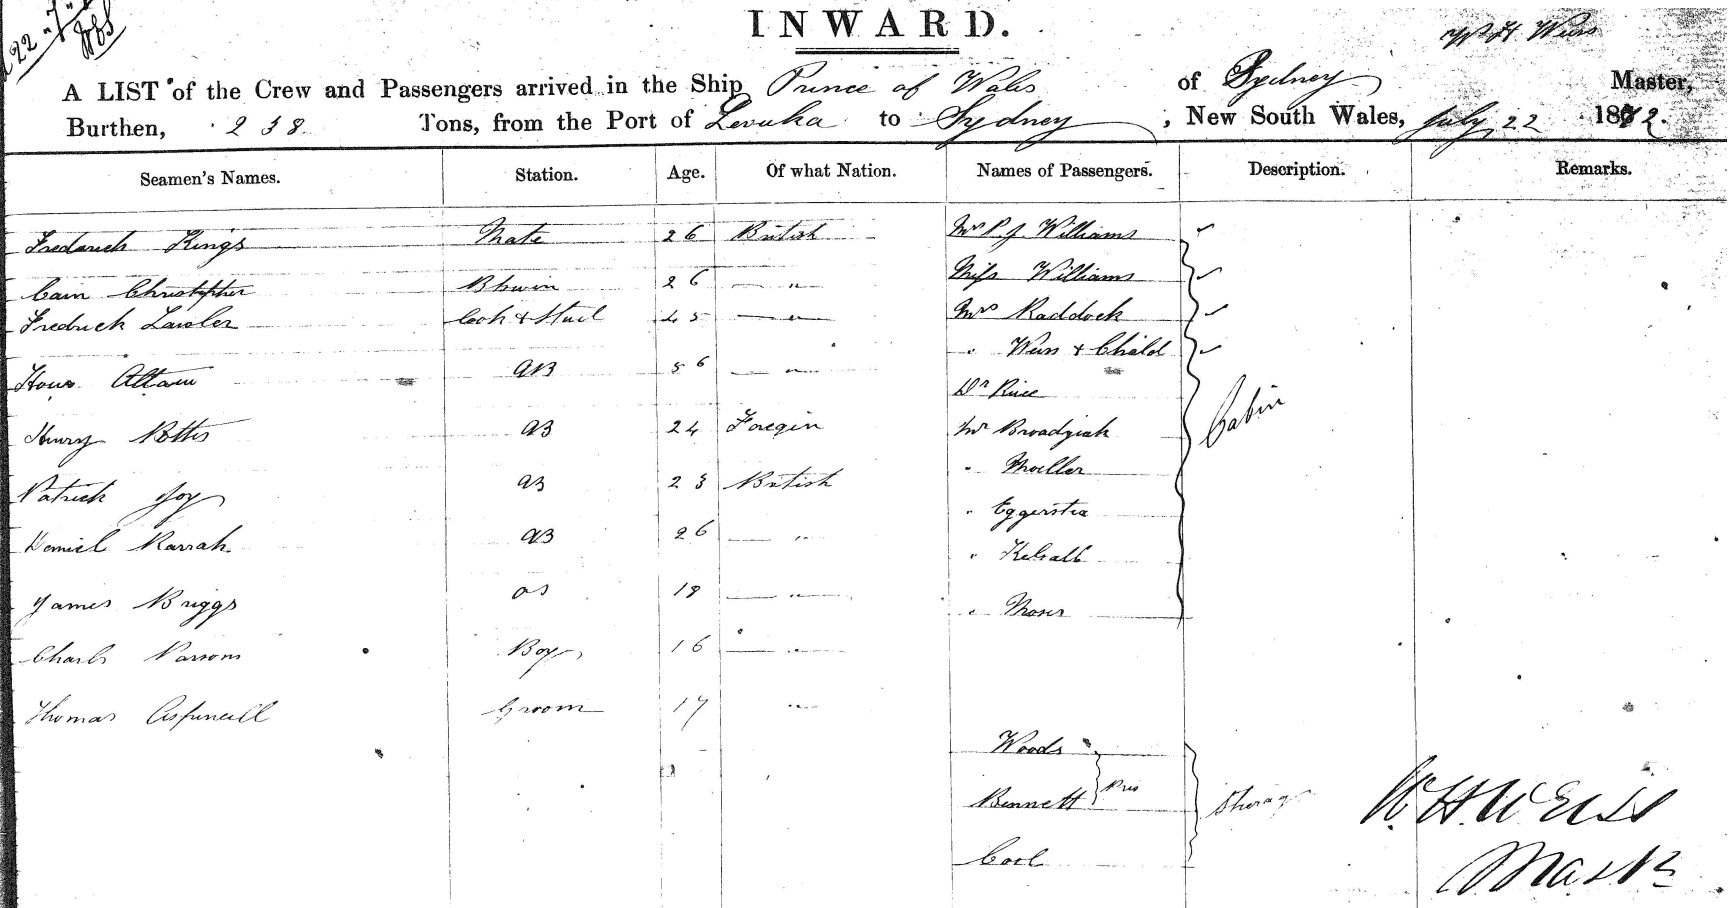 22
INWARD.
W. H. Weiss
A LIST of the Crew and Passengers arrived in the Ship Prince of Wales of Sydney Master,
Burthen, 238 Tons, from the Port of Levuka to Sydney, New South Wales, July 22 1872.
Seamen's Names. Station. Age. Of what Nation. Names of Passengers. Description. Remarks.
Frederick Kings Mate 26 British Mrs P. J. Williams
Cain Christopher 26 " Miss Williams
Fredrick Lawler Cook & Stud 45 " Mrs Raddock
" Weiss & Child
AB 56 " Dr Rice
Cabin
Henry Potts AB 24 Foregin Mr
" Moller
Patrick Joy AB 23 British
" Eggerstea
Daniel AB 26 "
" Kelsall
James Briggs OS 18 " " Moser
Charls Parsons Boy 16 "
Thomas Aspineall Groom 17 "
Woods
Bennett Pris
W. H. Weiss
Cool
Master